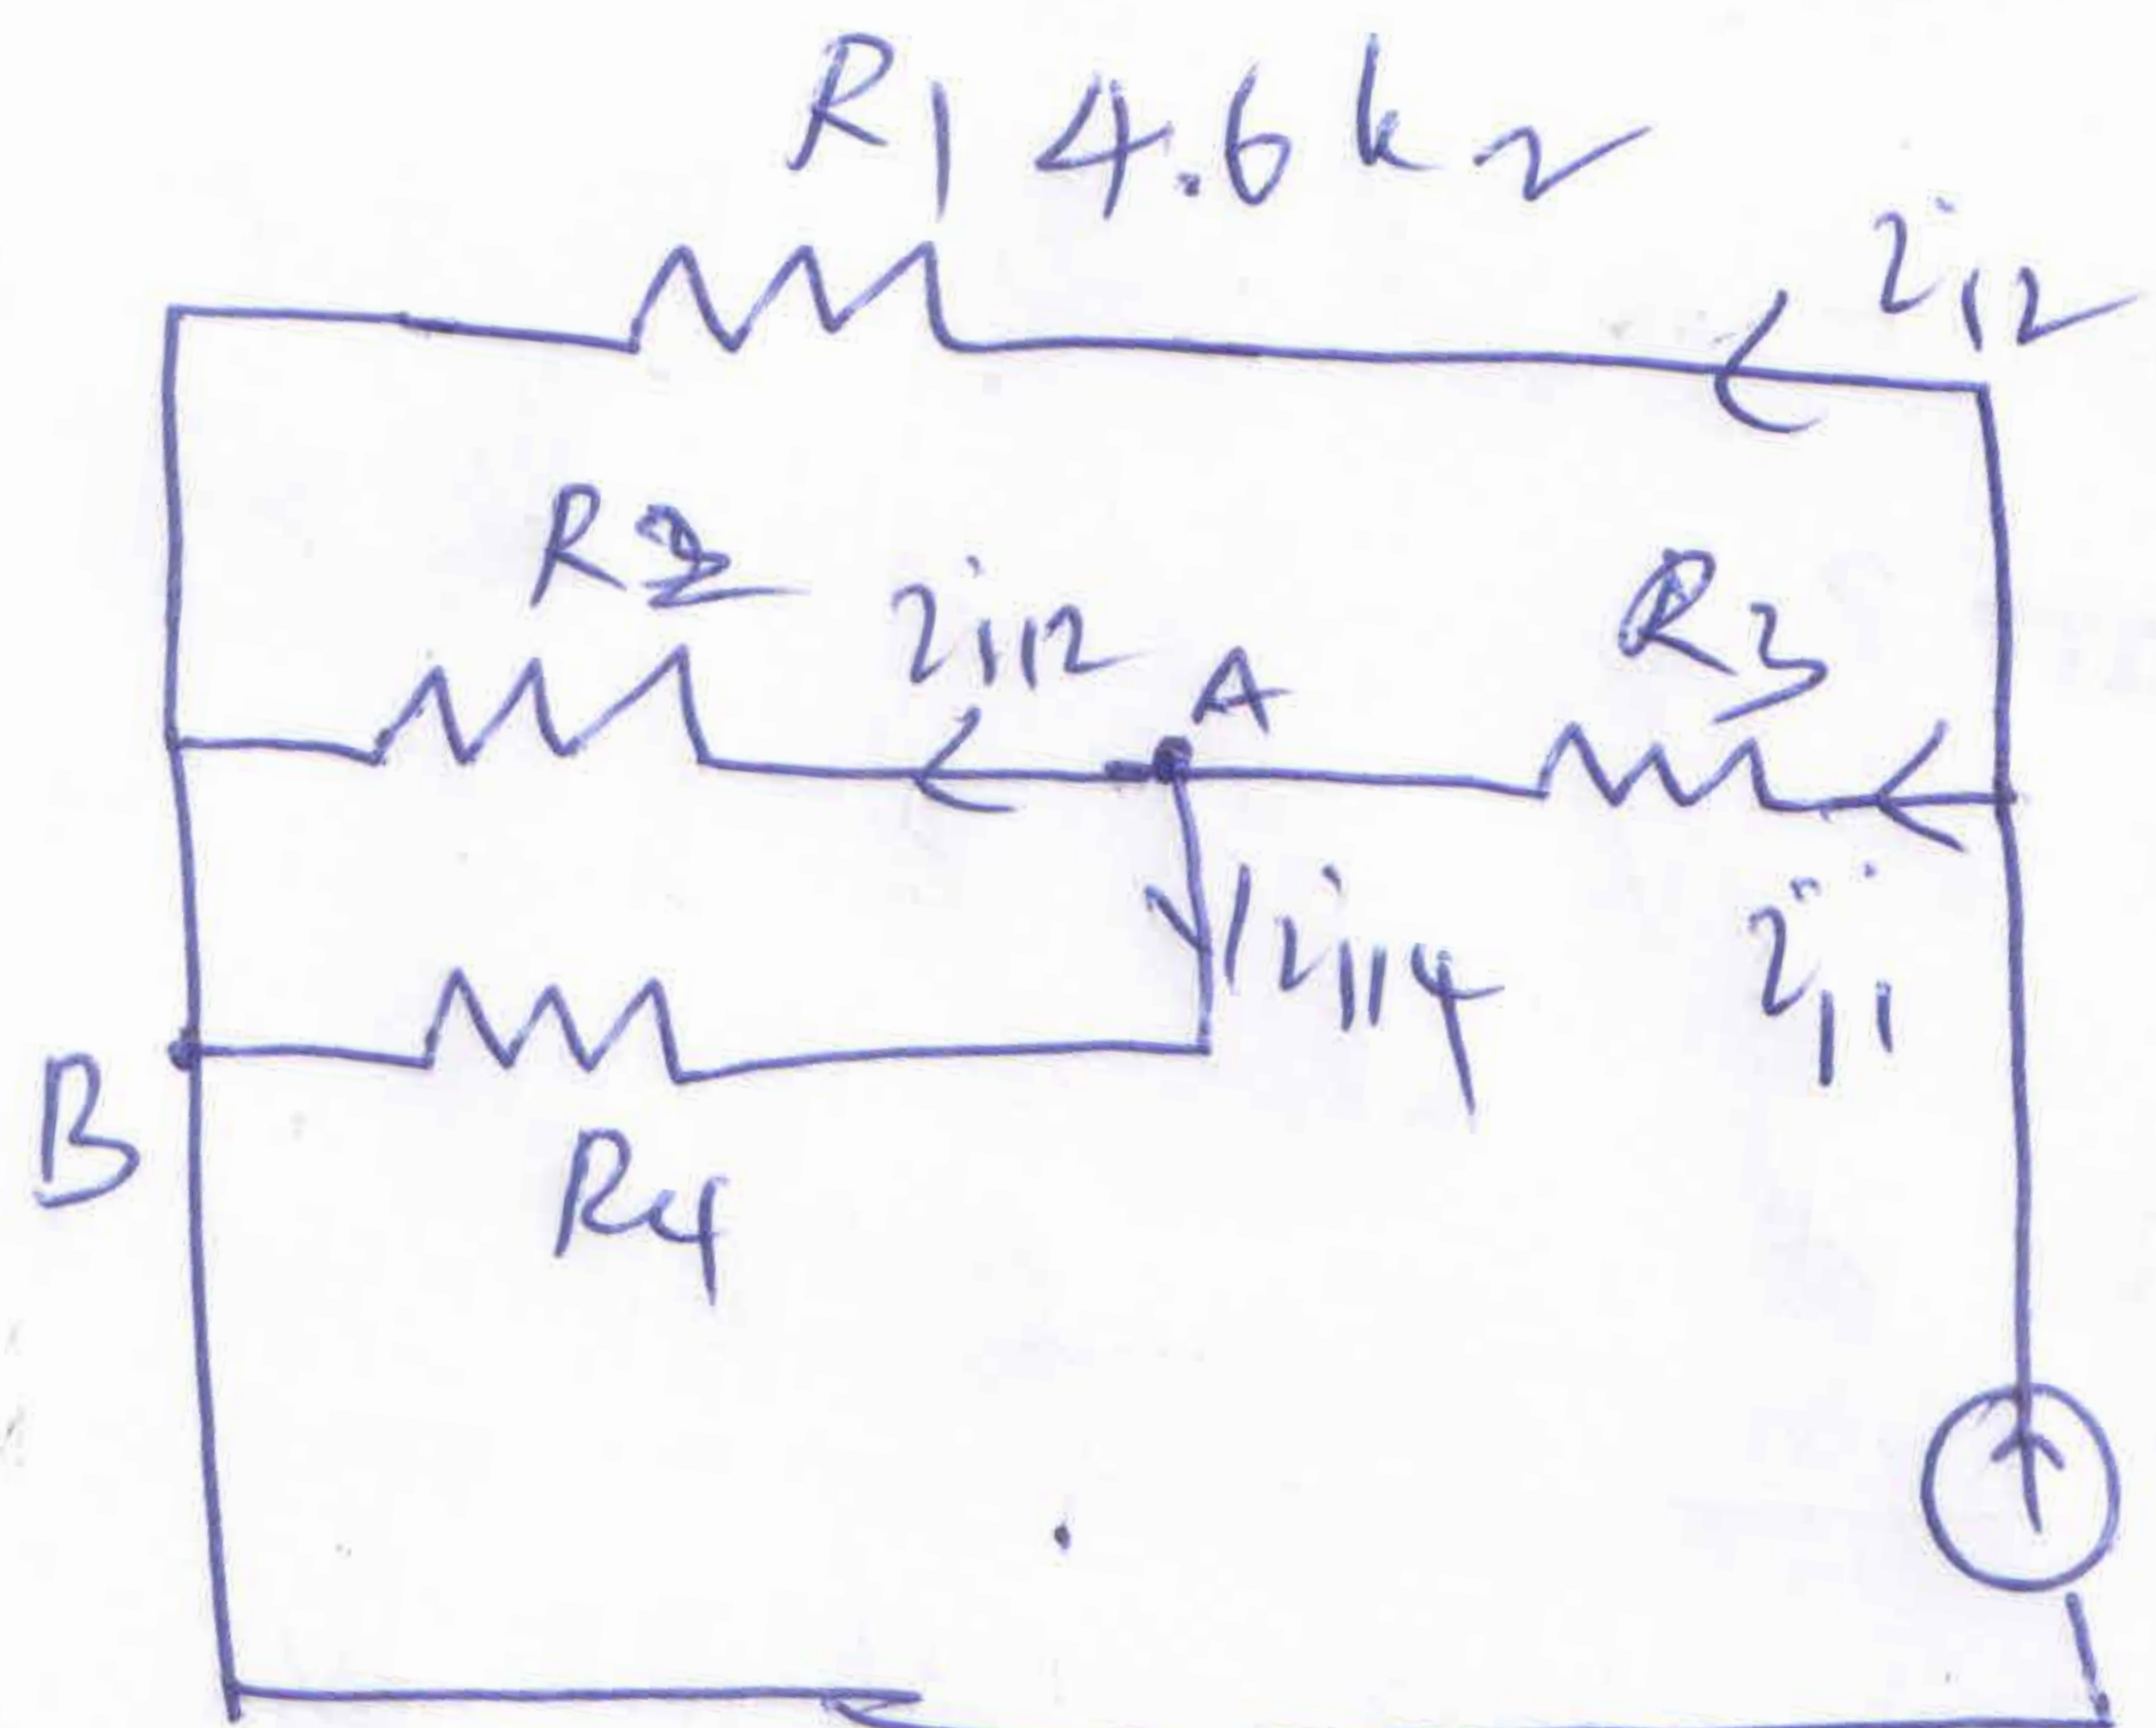 R1 4.6 k Ω
i12
R2
i112
A
R3
i114
i11
B
R4